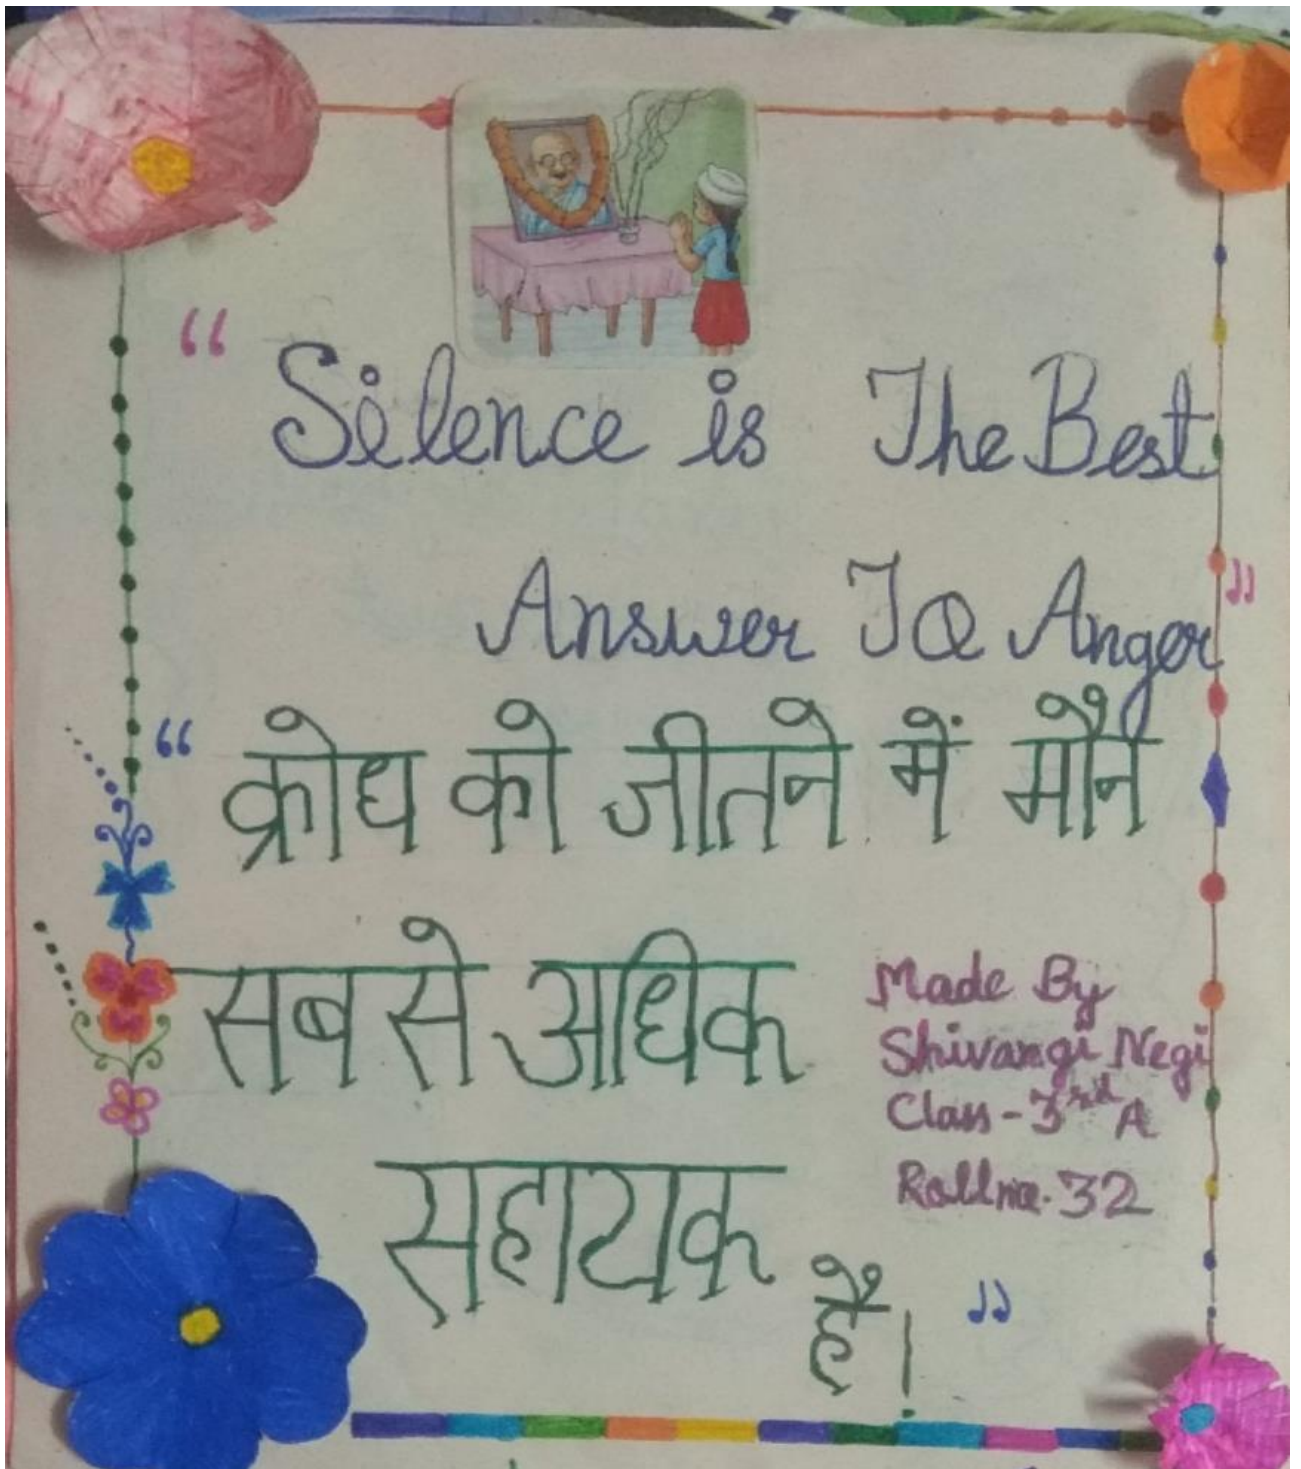 “ Silence is The Best
Answer To Anger ”
“ क्रोध को जीतने में मौन
सब से अधिक
सहायक
है। ”
Made By
Shivangi Negi
Class - 3rd A
Roll no. 32